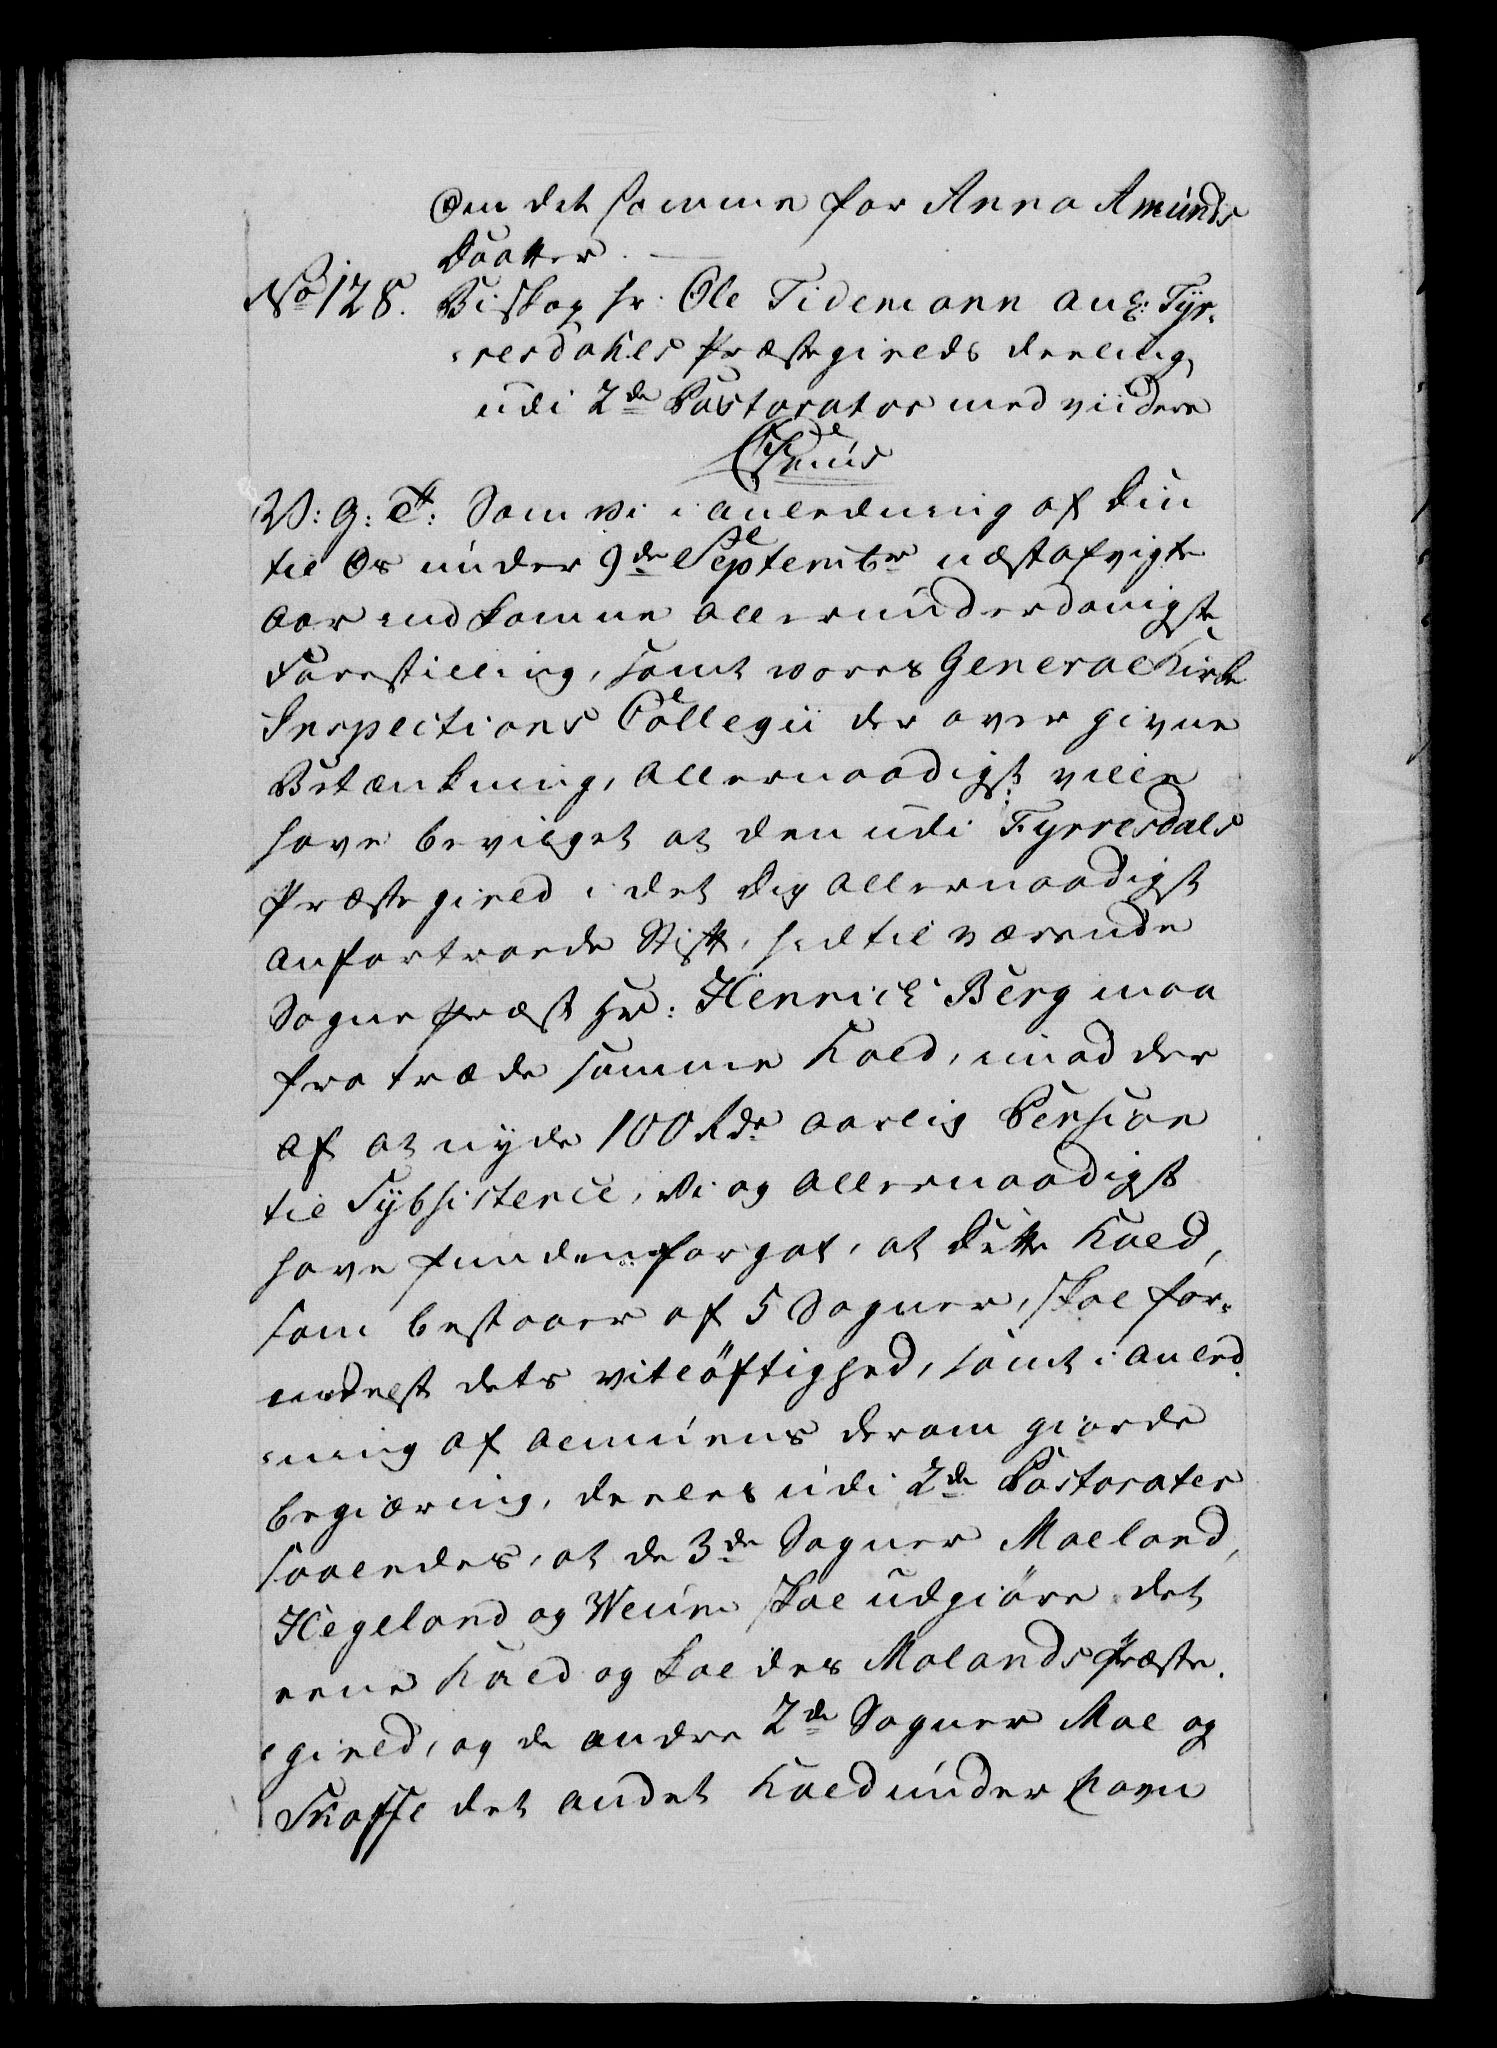 Om det samme for Anna Amúnds
Daatter.
No 128. Biskop hr: Ole Tidemann ang: Tyr-
resdahls Præstegields deeling
udi 2de Pastorater med viidere
V: G: T: Som Vi i anledning af Din
til Os under 9de Septembr næstafvigte
Aar indkomne allerunderdanigste
Forestilling, samt vores General Kirke
Inspections Collegii der over givne
Betænkning, allernaadigst ville
have bevilget at den udi Tyrresdals
Præstegield i det dig allernaadigst
anfortroede Stift, hidtil værende
Sognepræst Hr: Henrich Berg maa
fratræde samme Kald, imod der
af at nyde 100 Rdr aarlig Pension
til Sybsistence, Vi og allernaadigst
have funden for got, at dette Kald,
som bestaaer af 5 Sogner, skal for-
medelst dets vitløftighed, samt i anled-
ning af almuens derom giorde
begiæring, deeles udi 2de Pastorater
saaledes, at de 3de Sogner Moeland,
Hegeland og Weúm skal udgiøre det
eene Kald og kaldes Molands Præste-
gield, og de andre 2de Sogner Moe og
Skaffe det andet Kald under Navn